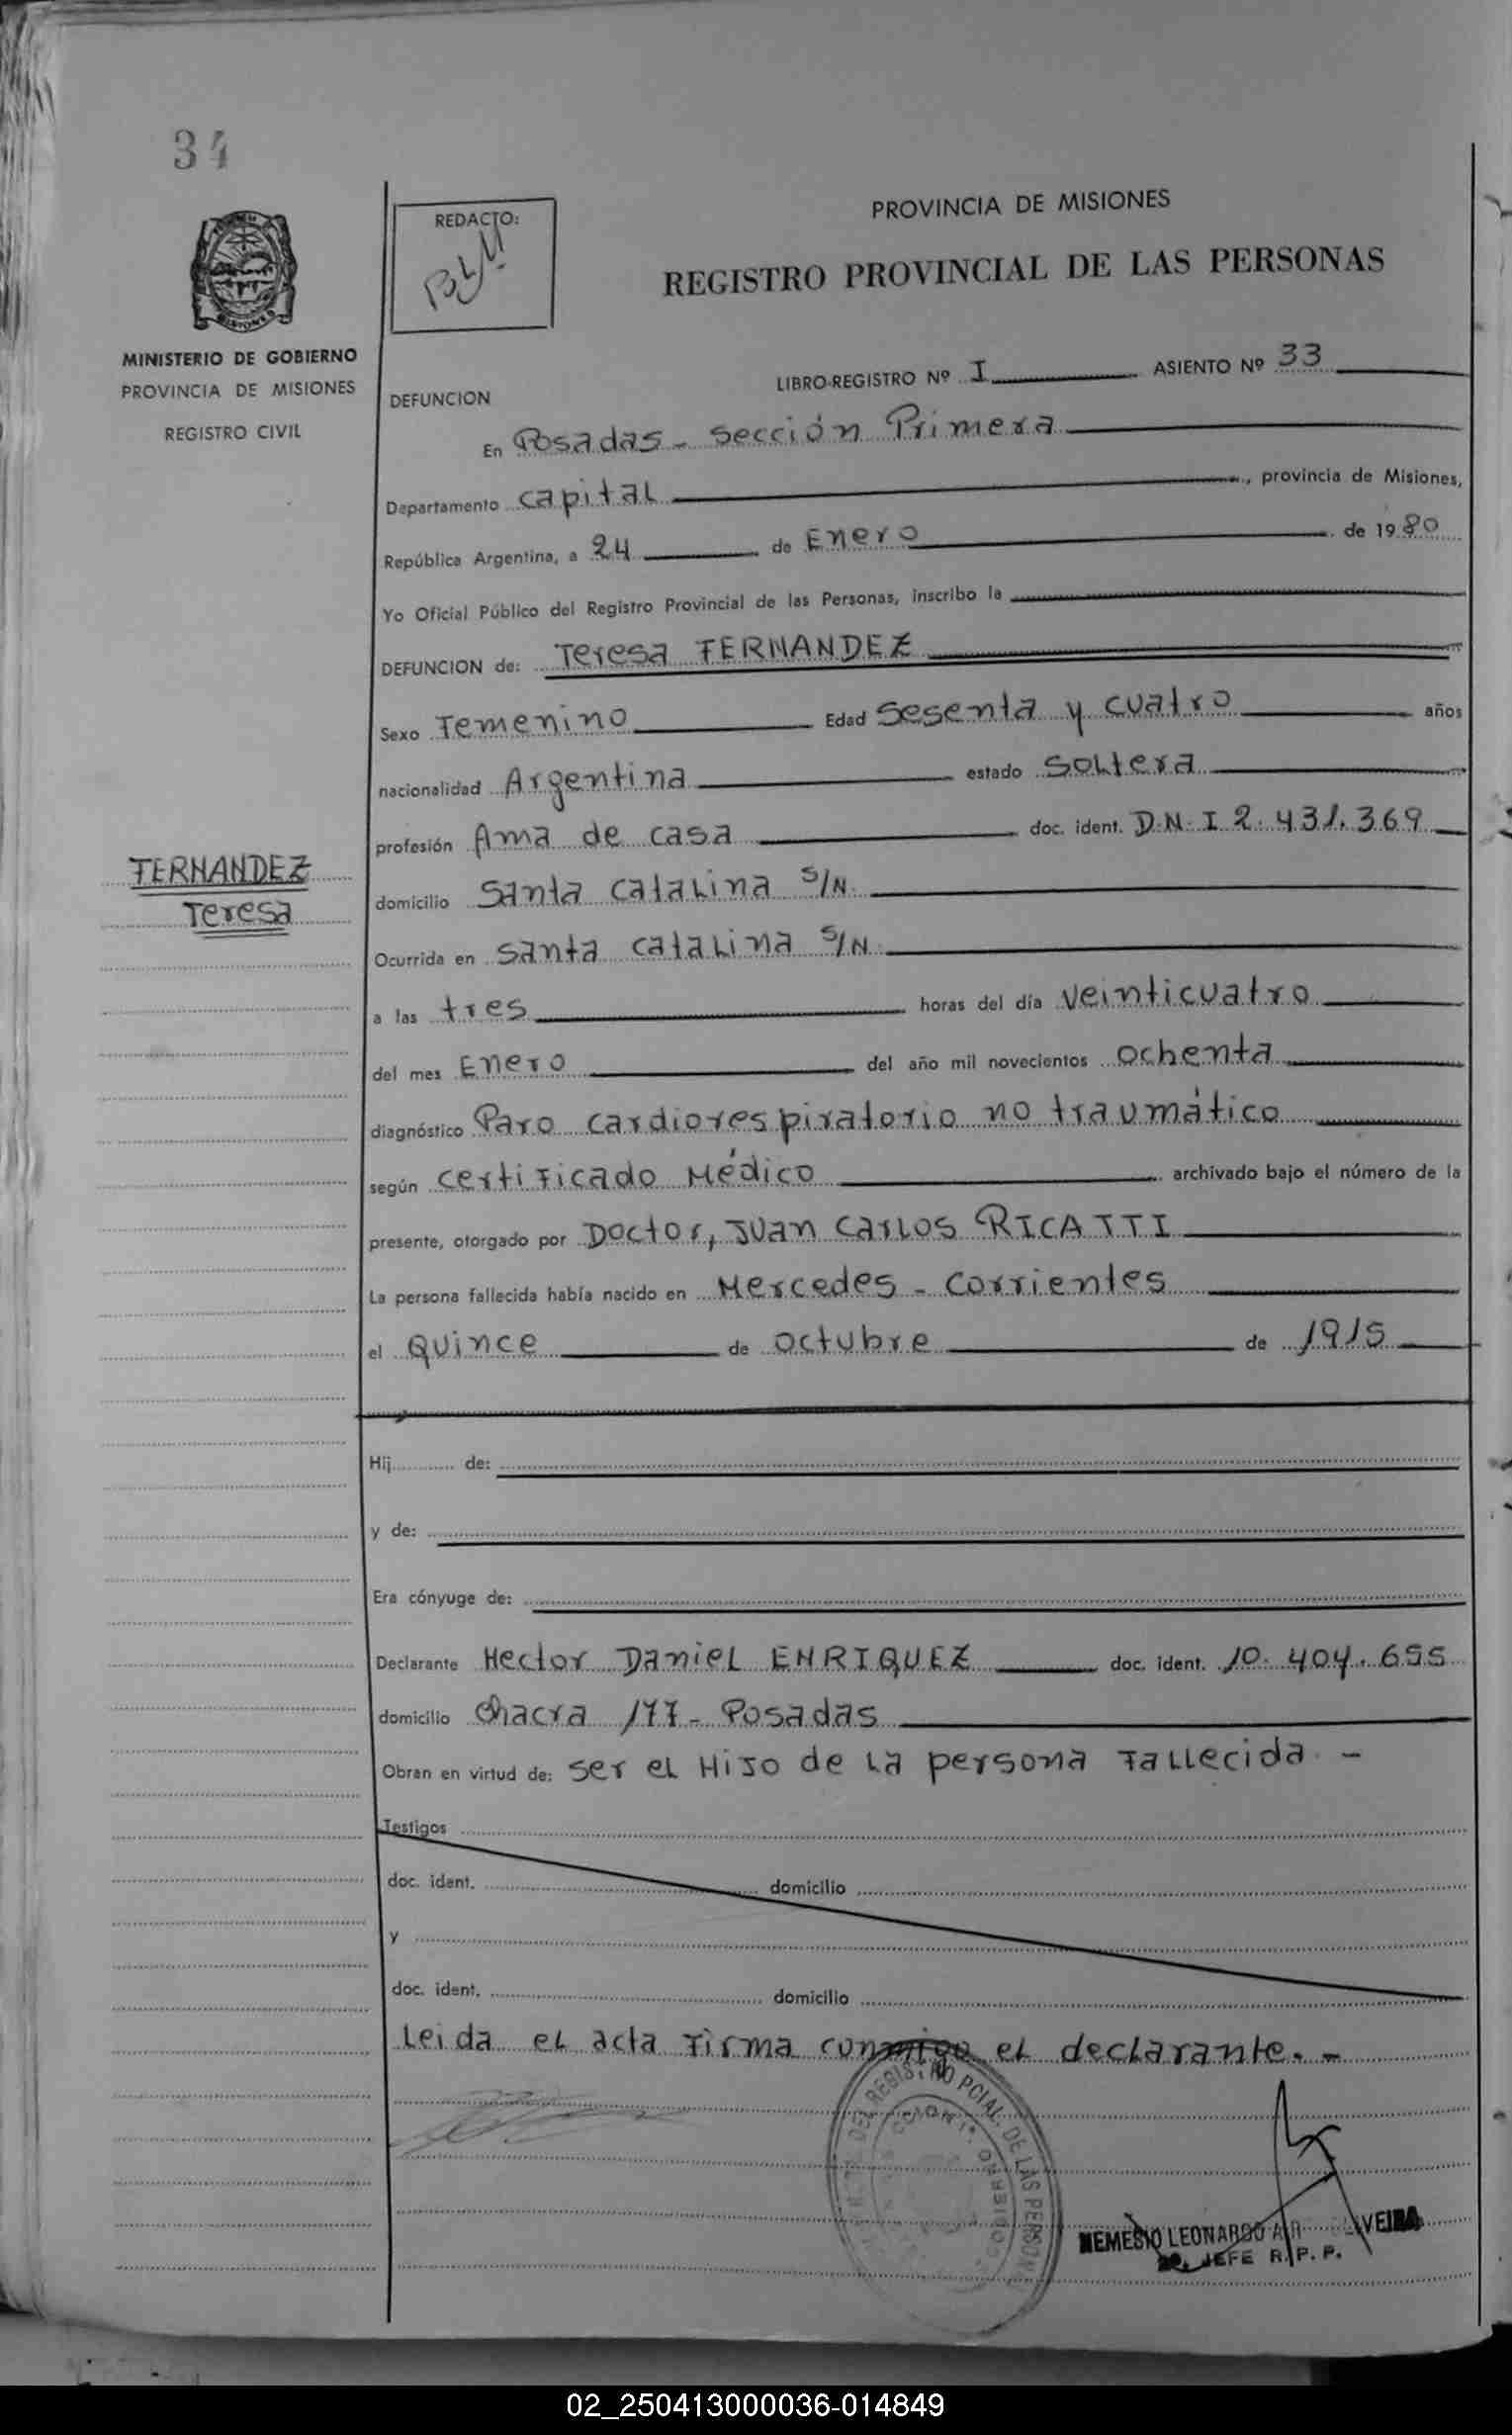 34
MISIONES
MINISTERIO DE GOBIERNO
PROVINCIA DE MISIONES
REGISTRO CIVIL
FERNANDEZ
Teresa
REDACTO:
BLM
PROVINCIA DE MISIONES
REGISTRO PROVINCIAL DE LAS PERSONAS
LIBRO-REGISTRO Nº I ASIENTO Nº 33
DEFUNCION
En Posadas - Sección Primera
Departamento Capital, provincia de Misiones,
República Argentina, a 24 de Enero de 1980
Yo Oficial Público del Registro Provincial de las Personas, inscribo la
DEFUNCION de: Teresa FERNANDEZ
Sexo Femenino Edad Sesenta y cuatro años
nacionalidad Argentina estado Soltera
profesión Ama de casa doc. ident. D.N.I 2.431.369
domicilio Santa Catalina S/N.
Ocurrida en Santa Catalina S/N.
a las tres horas del día veinticuatro
del mes Enero del año mil novecientos ochenta
diagnóstico Paro cardiorespiratorio no traumático
según Certificado Médico archivado bajo el número de la
presente, otorgado por Doctor, Juan Carlos RICATTI
La persona fallecida había nacido en Mercedes - Corrientes
el Quince de Octubre de 1915
Hij de:
y de:
Era cónyuge de:
Declarante Hector Daniel ENRIQUEZ doc. ident. 10.404.655
domicilio Chacra 177 - Posadas
Obran en virtud de: Ser el Hijo de la persona Fallecida. -
Testigos
doc. ident. domicilio
y
doc. ident. domicilio
Leida el acta firma conmigo el declarante. -
DEL REGISTRO PCIAL. DE LAS PERSON
NEMESIO LEONARDO
JEFE R. P. P.
02_250413000036-014849